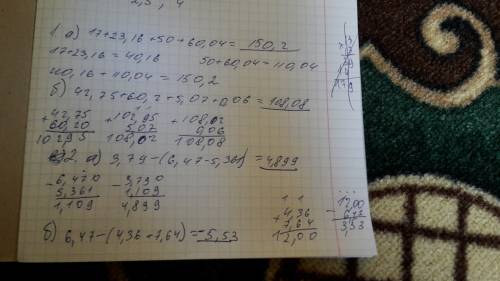 2,3, 4
1 а) 17+23,16+50+60,04=150,2
17+23,16=40,16 50+60,04=110,04
40,16+110,04=150,2
б) 42,75+60,2+5,07+0,06=108,08
+42,75 +102,95 +108,02
60,20 5,07 0,06
102,95 108,02 108,08
2. а) 9,79-(6,47-5,361)=4,899
-6,470 -9,790
5,361 1,109
1,109 4,899
б) 6,47-(4,36+7,64)=-5,53
1 1
+4,36
7,64
12,00
-12,00
6,47